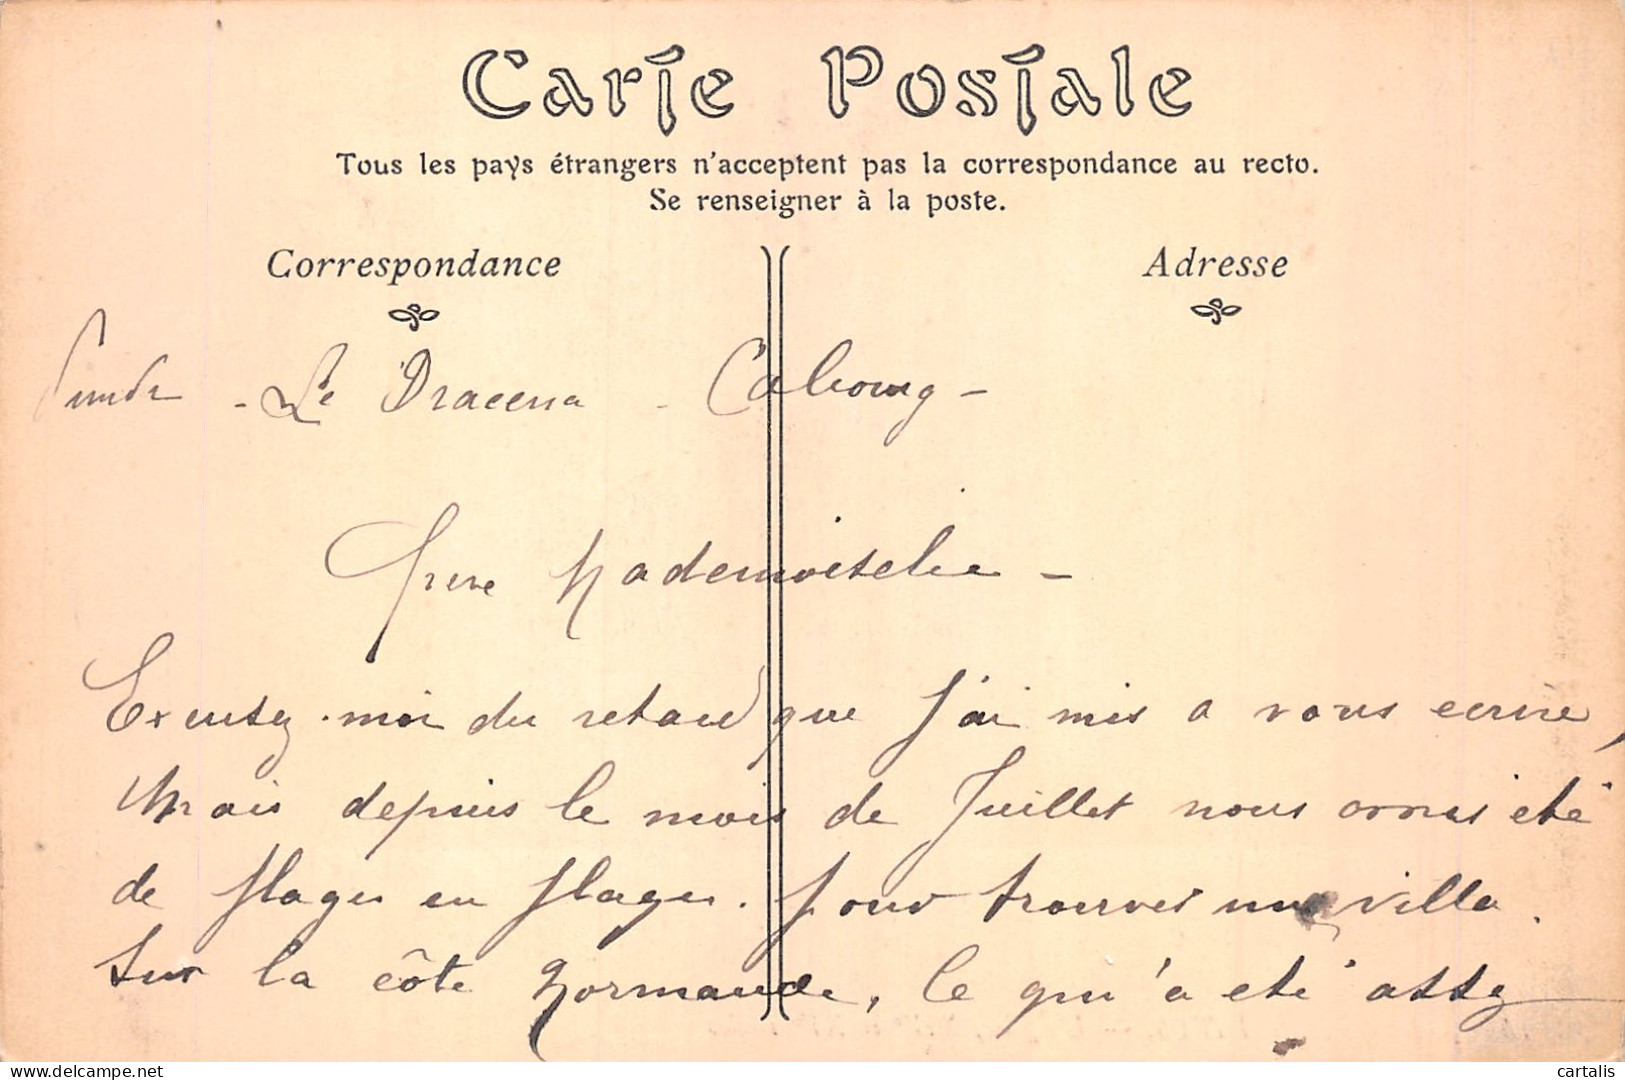 Carte Postale
Tous les pays étrangers n'acceptent pas la correspondance au recto.
Se renseigner à la poste.
Correspondance
Adresse
- Le Dracena - Cabourg -
Mademoiselle -
Excusez-moi du retard que j'ai mis a vous ecrire,
Mais depuis le mois de Juillet nous avons été
de plages en plages. pour trouver une villa.
sur la côte Normande, ce qui a été assez
delcampe.net
cartalis